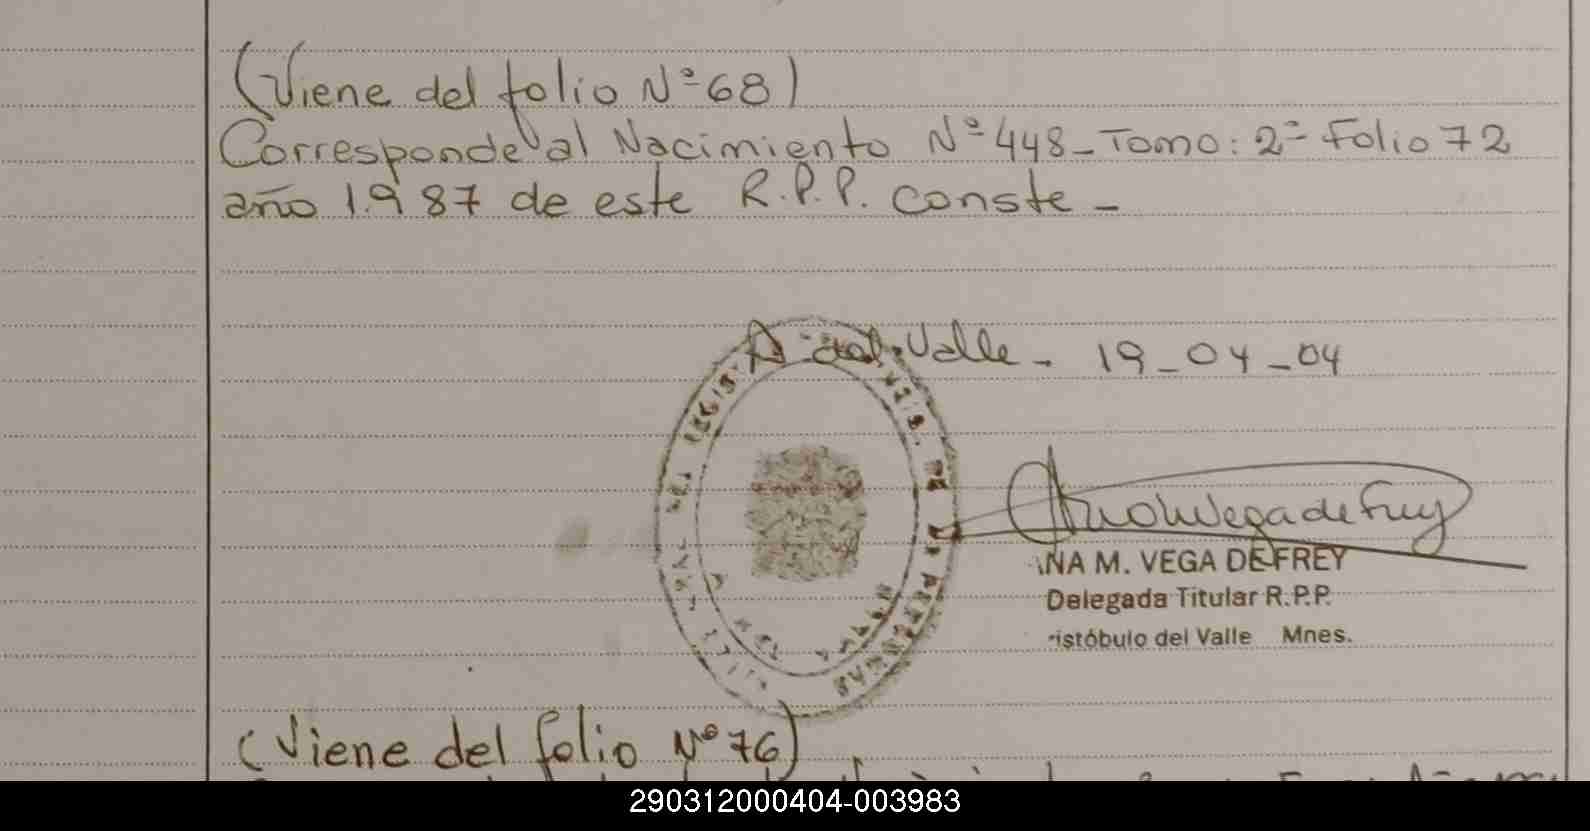 (Viene del folio Nº 68)
Corresponde al Nacimiento Nº 448 - Tomo: 2º Folio 72
año 1.987 de este R.P.P. conste -
A. del Valle - 19-04-04
NA M. VEGA DE FREY
Delegada Titular R.P.P.
istóbulo del Valle Mnes.
(Viene del folio Nº 76)
290312000404-003983